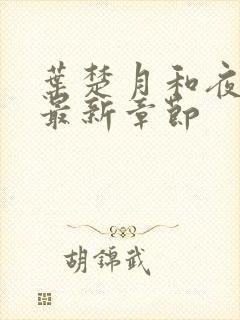 葉楚月和夜
最新章節
胡錦武